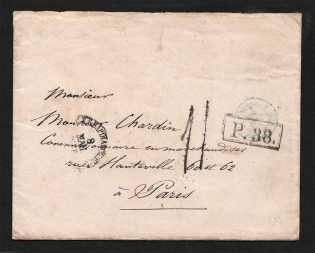 Monsieur
Monsieur Chardin
Commissionnaire en marchandises
rue Hauteville 60 et 62
à Paris
P. 38.
11